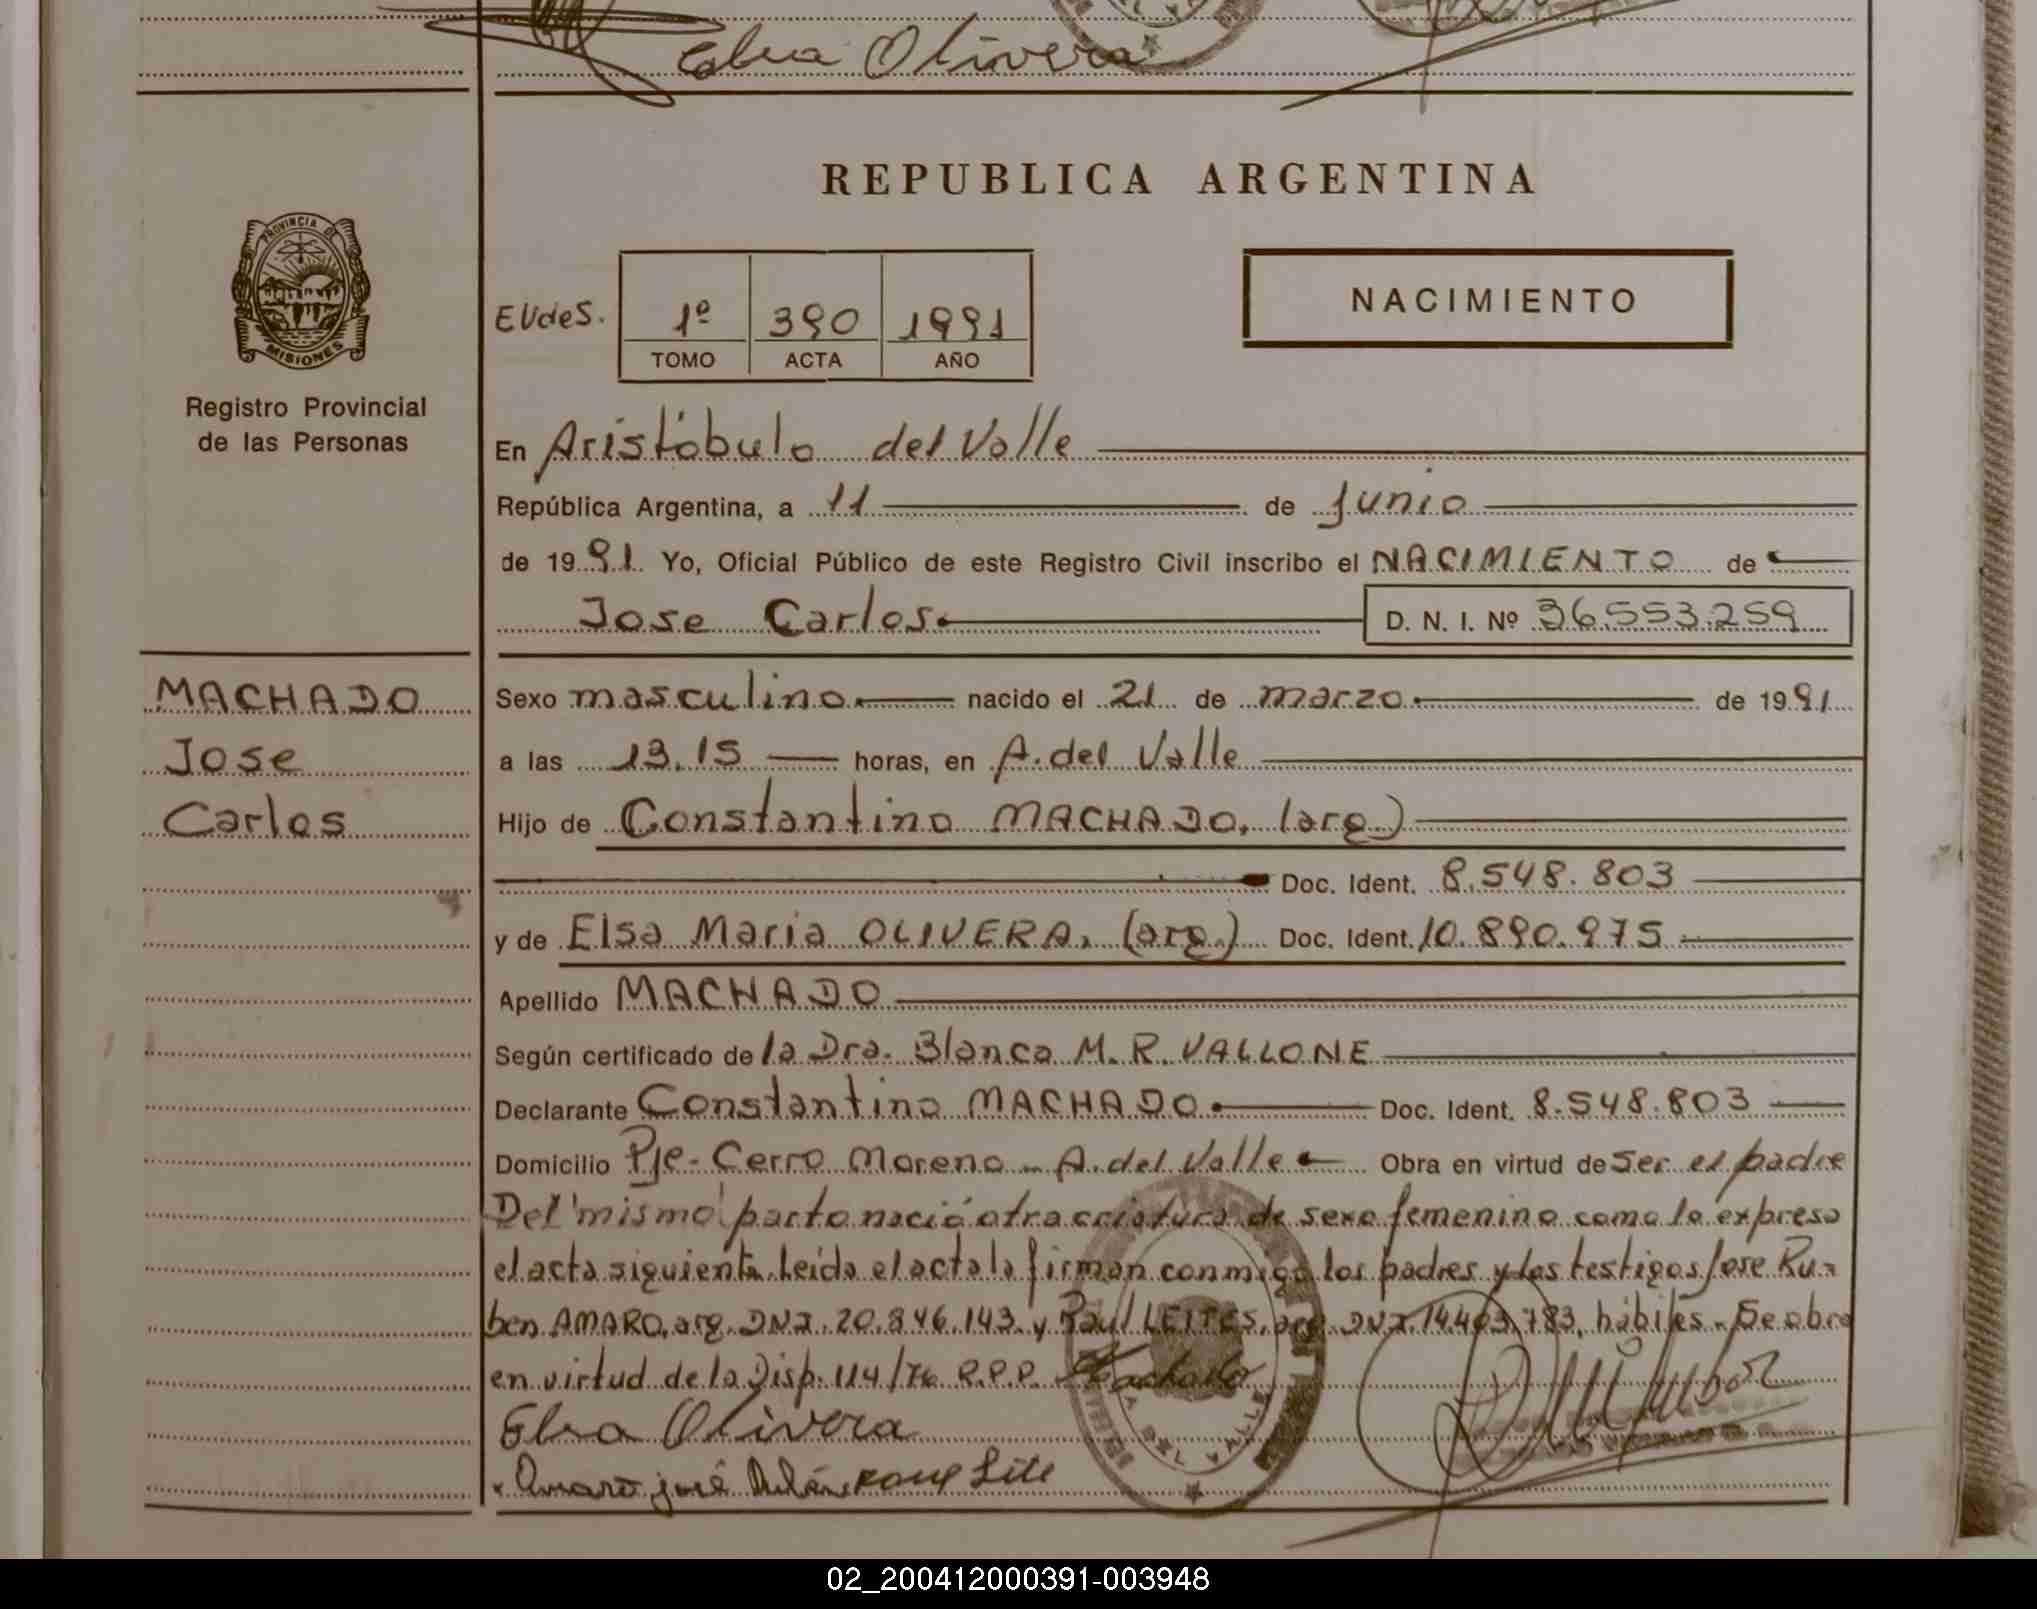 Elva Olivera
REPUBLICA ARGENTINA
PROVINCIA DE
MISIONES
Registro Provincial
de las Personas
EVdeS.
1º 390 1991
TOMO ACTA AÑO
NACIMIENTO
En Aristóbulo del Valle
República Argentina, a 11 de junio
de 1991 Yo, Oficial Público de este Registro Civil inscribo el NACIMIENTO de
Jose Carlos D. N. I. Nº 36.553.259
MACHADO
Jose
Carlos
Sexo masculino nacido el 21 de marzo de 1991
a las 13.15 horas, en A. del Valle
Hijo de Constantino MACHADO, (arg.)
Doc. Ident. 8.548.803
y de Elsa Maria OLIVERA, (arg.) Doc. Ident. 10.890.975
Apellido MACHADO
Según certificado de la Dra. Blanca M. R. VALLONE
Declarante Constantino MACHADO Doc. Ident. 8.548.803
Domicilio Pje. Cerro Moreno - A. del Valle Obra en virtud de ser el padre
Del mismo parto nació otra criatura de sexo femenino como lo expresa
el acta siguiente. Leída el acta la firman conmigo los padres y los testigos Jose Ru-
ben AMARO, arg. DNI. 20.846.143 y Raul LEITES, arg. DNI. 14.403.783, hábiles. Se obra
en virtud de la Disp. 114/76 R.P.P. Machado
Elva Olivera
Amaro josé
DEL VALLE
02_200412000391-003948